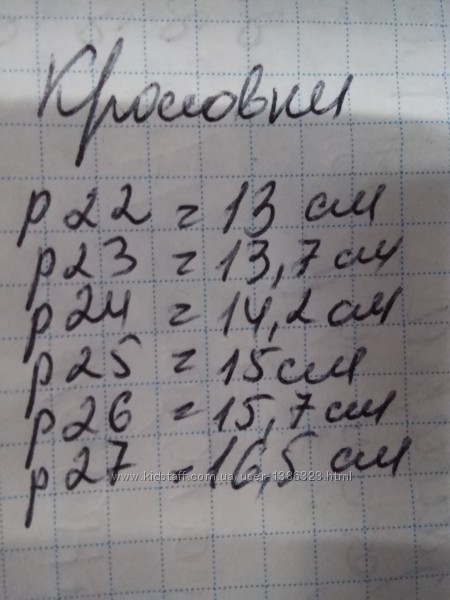 Кросовки
р22 = 13 см
р23 = 13,7 см
р24 = 14,2 см
р25 = 15 см
р26 = 15,7 см
р27 = 16,5 см
www.kidstaff.com.ua/user-1386323.html